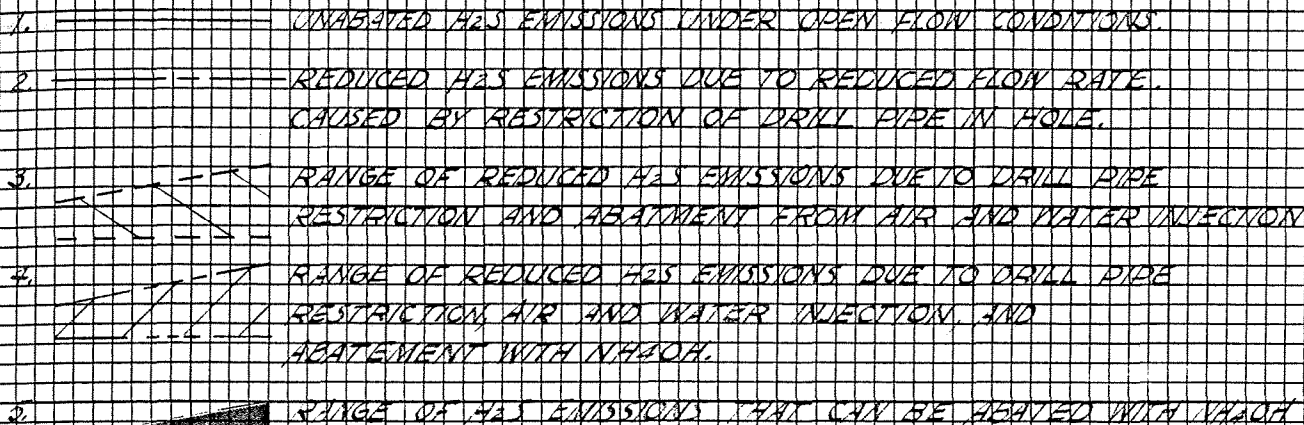 1. UNABATED H2S EMISSIONS UNDER OPEN FLOW CONDITIONS.
2. REDUCED H2S EMISSIONS DUE TO REDUCED FLOW RATE.
CAUSED BY RESTRICTION OF DRILL PIPE IN HOLE.
3. RANGE OF REDUCED H2S EMISSIONS DUE TO DRILL PIPE
RESTRICTION AND ABATMENT FROM AIR AND WATER INJECTION
4. RANGE OF REDUCED H2S EMISSIONS DUE TO DRILL PIPE
RESTRICTION, AIR AND WATER INJECTION, AND
ABATEMENT WITH NH4OH.
5. RANGE OF H2S EMISSIONS THAT CAN BE ABATED WITH NH4OH